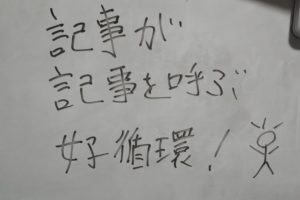 記事が
記事を呼ぶ
好循環!